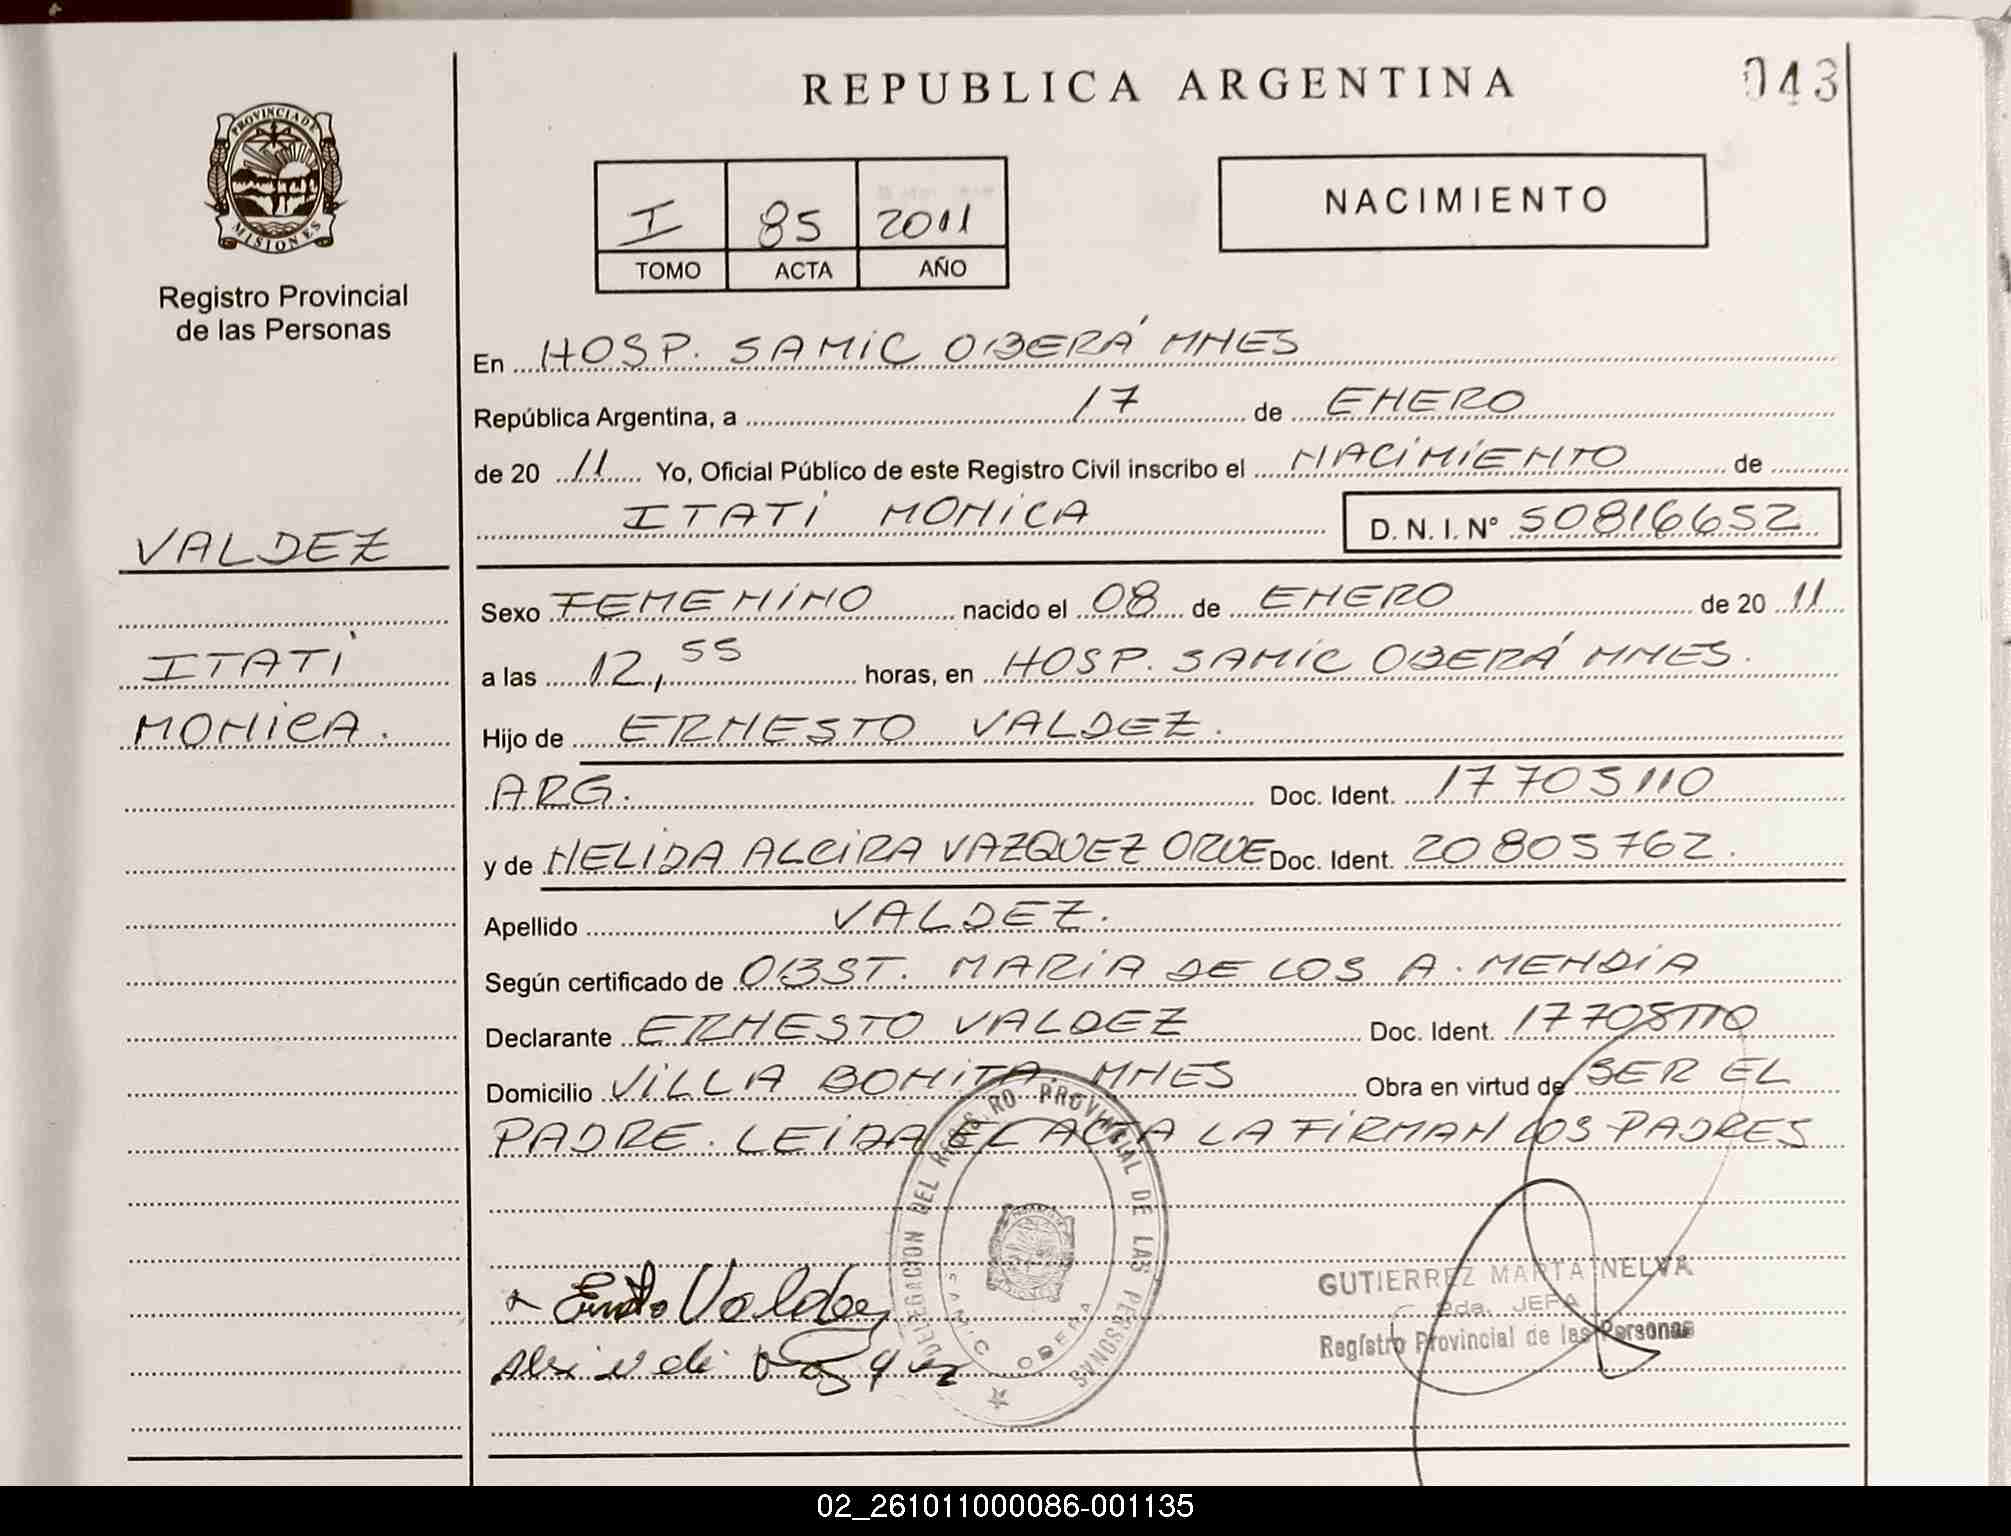 REPUBLICA ARGENTINA
043
PROVINCIA DE
MISIONES
Registro Provincial
de las Personas
I 85 2011
TOMO ACTA AÑO
NACIMIENTO
En HOSP. SAMIC OBERÁ MNES
República Argentina, a 17 de ENERO
de 20 11 Yo, Oficial Público de este Registro Civil inscribo el NACIMIENTO de
ITATI MONICA D. N. I. N° 50816652
VALDEZ
ITATI
MONICA.
Sexo FEMENINO nacido el 08 de ENERO de 20 11
a las 12,55 horas, en HOSP. SAMIC OBERÁ MNES.
Hijo de ERNESTO VALDEZ.
ARG. Doc. Ident. 17705110
y de NELIDA ALCIRA VAZQUEZ ORUE Doc. Ident. 20805762.
Apellido VALDEZ.
Según certificado de OBST. MARIA DE LOS A. MENDIA
Declarante ERNESTO VALDEZ Doc. Ident. 17705110
Domicilio VILLA BONITA. MNES Obra en virtud de SER EL
PADRE. LEIDA EL ACTA LA FIRMAN LOS PADRES
DELEGACION DEL REGISTRO PROVINCIAL DE LAS PERSONAS
SAMIC OBERA
Valdez
GUTIERREZ MARTA NELVA
2da. JEFA
Registro Provincial de las Personas
02_261011000086-001135